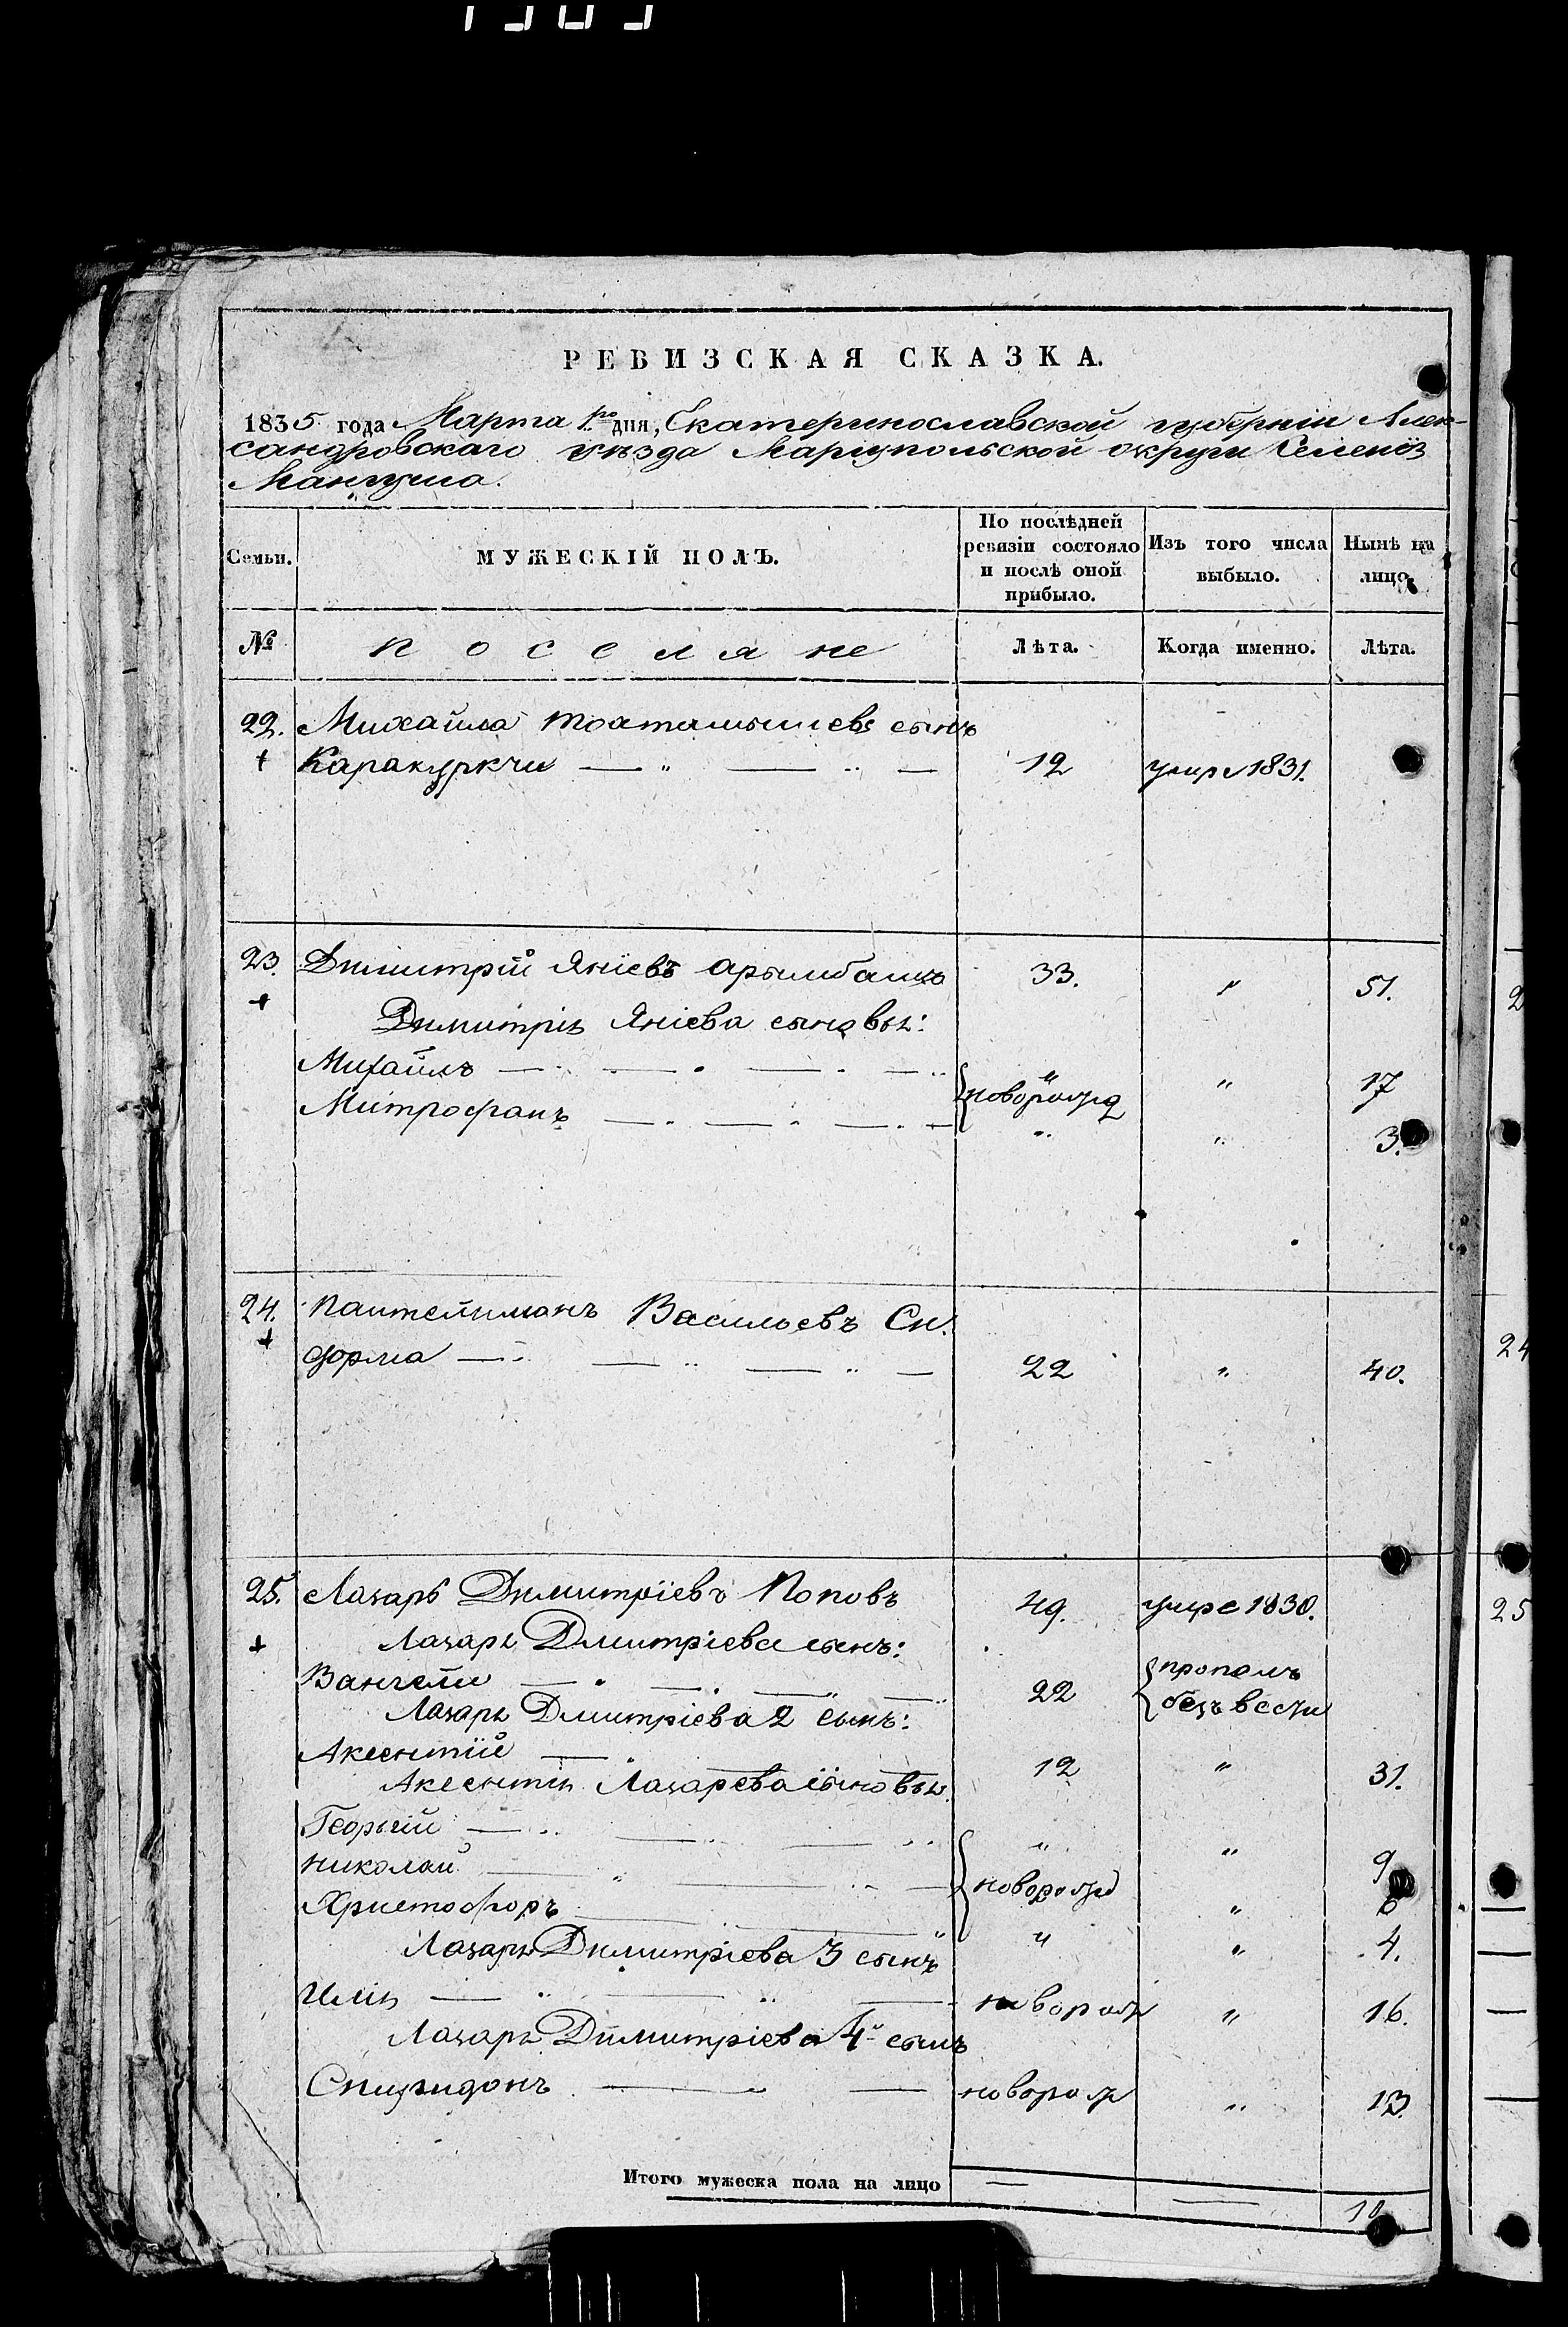 РЕВИЗСКАЯ СКАЗКА.
1835 года Марта 1го дня, Екатеринославской губерніи Алек-
сандровскаго уѣзда Маріупольской округи Селенія
Мангуша.
Семьи. МУЖЕСКІЙ ПОЛЪ. По послѣдней ревизіи состояло и послѣ оной прибыло. Изъ того числа выбыло. Нынѣ на лицо.
№ поселяне Лѣта. Когда именно. Лѣта.
22. Михайла Тохтамышевъ сынъ
+ Каракуркчи — „ — „ — 12 умре 1831.
23. Димитрій Яніевъ Арымбашъ 33. „ 51.
+ Димитрія Яніева сыновьи:
Михаилъ — „ — „ — „ — „ „ „ 17
Митрофанъ — „ — „ — „ — новорожд „ „ 3.
24. Пантелимонъ Васильевъ Си.
+ форма — „ — „ — „ — 22 „ 40.
25. Лазарь Димитріевъ Поповъ 49. умре 1830.
+ Лазаря Дмитріева сынъ:
Вангели — „ — „ — „ — „ 22 пропалъ безъ вести
Лазаря Дмитріева 2 сынъ:
Аксентій — „ — — 12 „ 31.
Аксентія Лазарева сыновьи
Георгій — „ — „ — „ „ „ „ 9
Николай — „ — „ — новорожд „ 6
Христофоръ — — „ „ „ 4.
Лазаря Димитріева 3 сынъ
Илія — „ — „ — новорож „ 16.
Лазаря Димитріева 4й сынъ
Спиридонъ — „ — новорож „ 13.
Итого мужеска пола на лицо — — 10
2
24
25